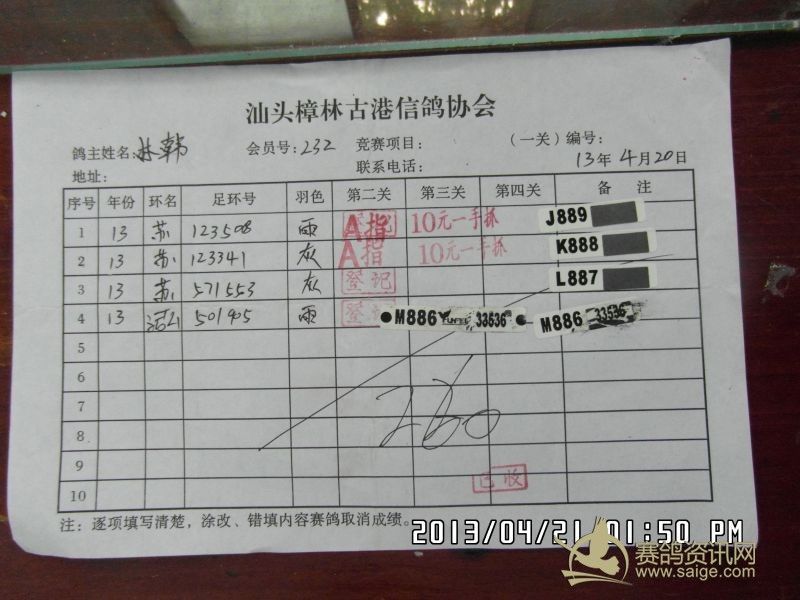 汕头樟林古港信鸽协会
鸽主姓名: 林韩 会员号: 232 竞赛项目: (一关) 编号:
地址: 联系电话: 13年4月20日
序号 年份 环名 足环号 羽色 第二关 第三关 第四关 备 注
1 13 苏 123508 雨 A指 10元一手抓 J889
2 13 苏 123341 灰 A指 10元一手抓 K888
3 13 苏 571553 灰 登记 L887
4 13 501905 雨 登记 M886 33536 M886 33536
5
6
7
8
9
10
260
已收
注: 逐项填写清楚, 涂改、错填内容赛鸽取消成绩。
2013/04/21 01:50 PM
赛鸽资讯网
www.saige.com